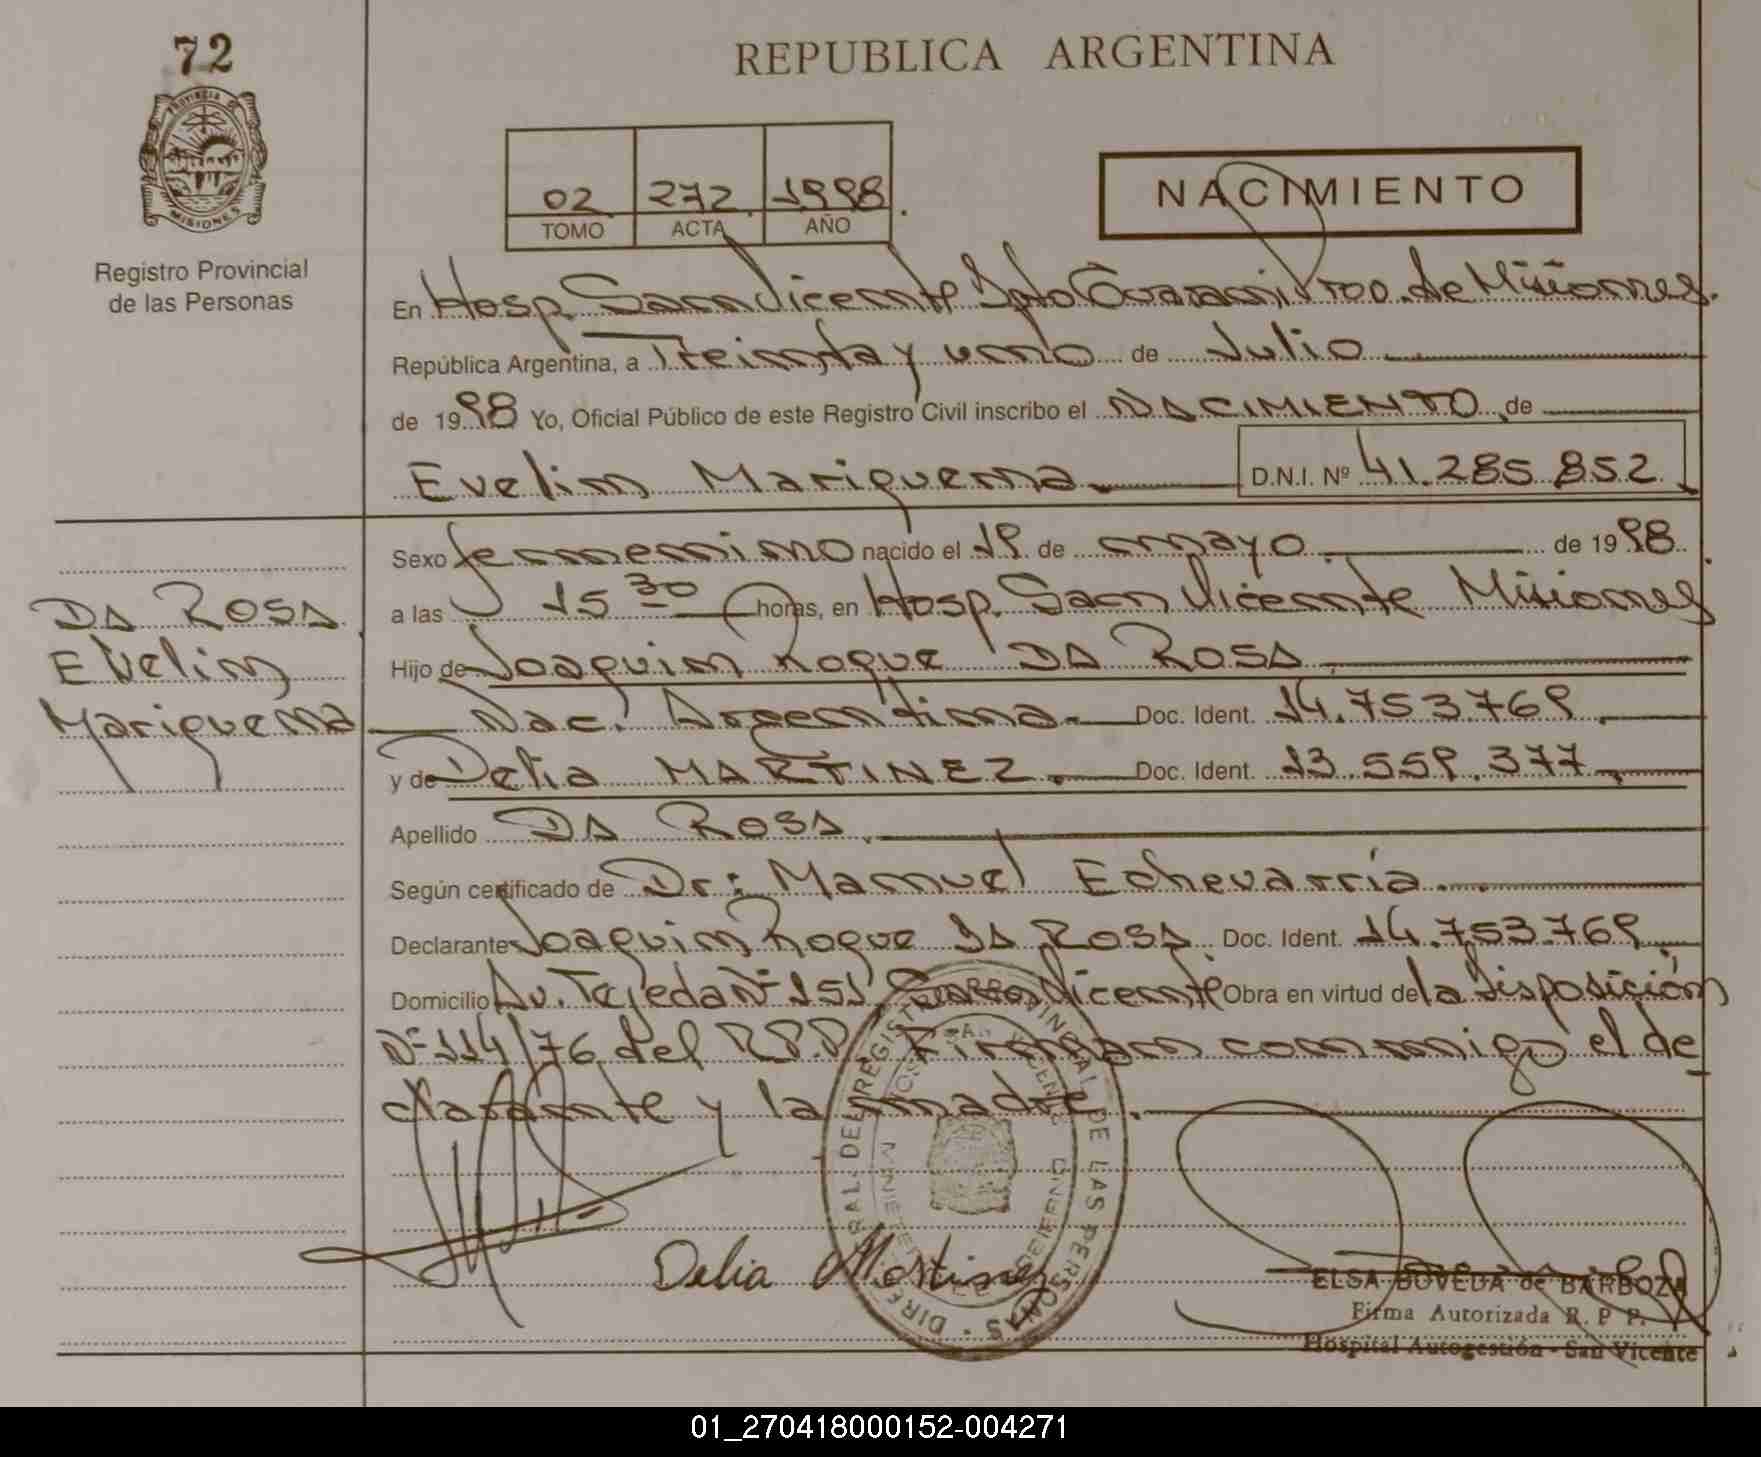 72
REPUBLICA ARGENTINA
PROVINCIA DE
MISIONES
Registro Provincial
de las Personas
02 272 1998
TOMO ACTA AÑO
NACIMIENTO
En Hosp. San Vicente Dpto Guaraní Pro. de Misiones
República Argentina, a Treinta y uno de Julio
de 1998 Yo, Oficial Público de este Registro Civil inscribo el NACIMIENTO de
Evelin Mariquena D.N.I. Nº 41.285.852
Sexo femenino nacido el 19 de mayo de 1998
a las 15 30 horas, en Hosp. San Vicente Misiones
Hijo de Joaquin Roque DA ROSA
Nac. Argentina Doc. Ident. 14.753.769
y de Delia MARTINEZ. Doc. Ident. 13.559.377
Apellido DA ROSA
Según certificado de Dr: Manuel Echevarría
Declarante Joaquin Roque DA ROSA Doc. Ident. 14.753.769
Domicilio Av. Tejeda Nº 151 San Vicente Obra en virtud de la disposición
Nº 114/76 del R.P.P. Firman conmigo el de
clarante y la madre.
DA ROSA
Evelin
Mariquena
Delia Martinez
DIRECCION GENERAL DEL REGISTRO PROVINCIAL DE LAS PERSONAS
ELSA BOVEDA de BARBOZA
Firma Autorizada R. P. P.
Hospital Autogestión - San Vicente
01_270418000152-004271